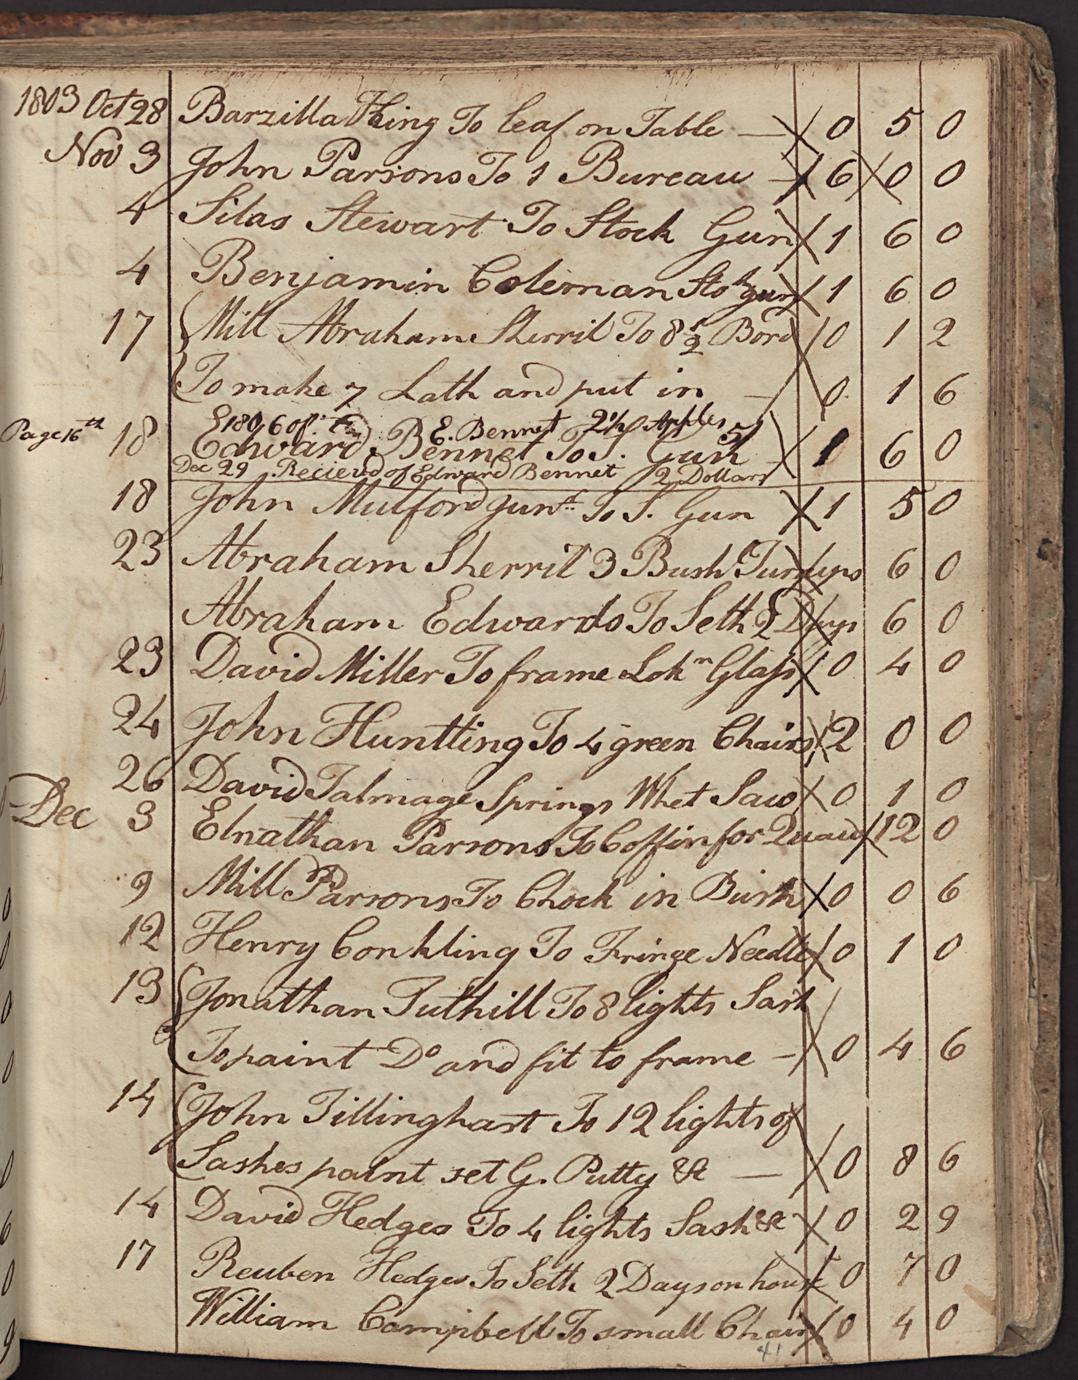 1803 Oct 28 Barzilla King To leaf on Table — 0 5 0
Nov 3 John Parsons To 1 Bureau — 6 0 0
4 Silas Stewart To Stock Gun 1 6 0
4 Benjamin Coleman Stok gun 1 6 0
17 Mill Abraham Sherril To 8 1/2 Bord 0 1 2
To make 7 Lath and put in — 0 1 6
E. Bennet 2 1/2 Apples
Page 16th 18 Edward Bennet To S. Gun 1 6 0
Dec 29 Recieved of Edward Bennet 2 Dollars
18 John Mulford Junr To S. Gun 1 5 0
23 Abraham Sherril 3 Bush Turnups 6 0
Abraham Edwards To Seth 2 Days 6 0
23 David Miller To frame Lokn Glass 0 4 0
24 John Huntting To 4 green Chairs 2 0 0
26 David Talmage Springs Whet Saw 0 1 0
Dec 3 Elnathan Parsons To Coffin for Quaw 12 0
9 Mill Parsons To Chock in Busk 0 0 6
12 Henry Conkling To Fringe Needle 0 1 0
13 Jonathan Tuthill To 8 lights Sash
To paint Do and fit to frame — 0 4 6
14 John Tillinghast To 12 lights of
Sashes paint set G. Putty &c — 0 8 6
14 David Hedges To 4 lights Sash &c 0 2 9
17 Reuben Hedges To Seth 2 Days on house 0 7 0
William Campbell To small Chair 0 4 0
41